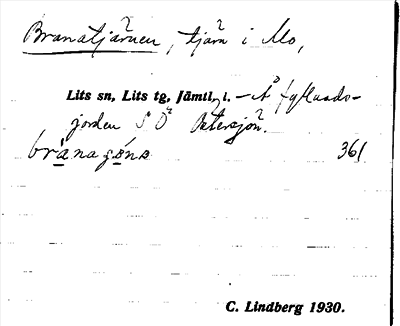 Branatjärnen, tjärn i Mo,
Lits sn, Lits tg, Jämtl. l. – Å fyllnads-
jorden S Ö Östersjön.
brånagǿns 361
C. Lindberg 1930.